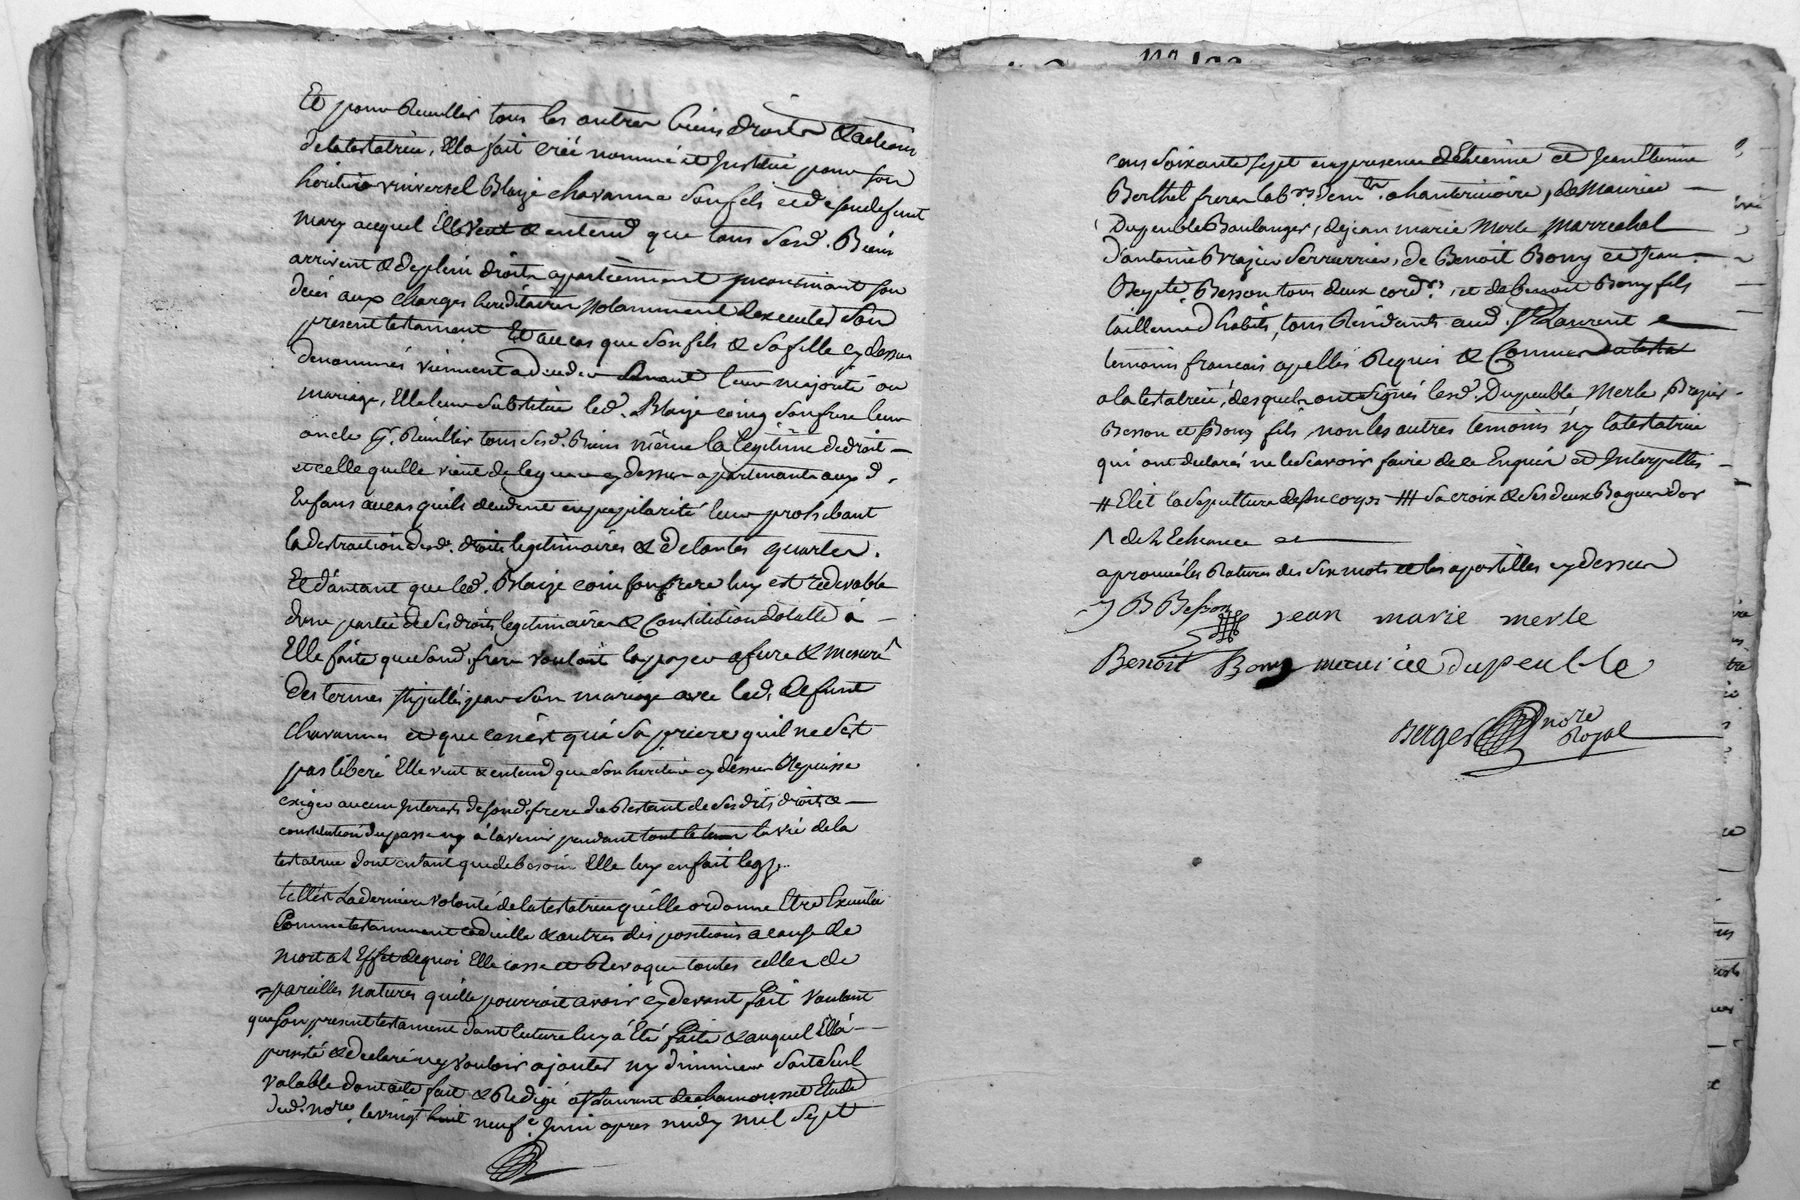 Et pour Recuillir tous les autres biens droits & actions
de la testatrice, Ella fait créé nommé et Institué pour son
heritier universel Blaize chavanne son fils et de son defunt
mary auquel Elle veut & entend que tous sesd. Biens
arrivent & de plein droits apartiennent incontinant son
déces aux charges hereditaires Notamment dexecuter son
present testament Et au cas que son fils & sa fille cy dessus
denommés viennent a deceder avant leur majorité ou
mariage, Elle leur substitue led. Blaize coing son frere leur
oncle pr. Recuillir tous sesd. Biens même la legitime de droit
et celle quelle vient de leguer cy dessus apartenante auxd.
Enfans au cas quils decedent en pupilarité leur prohibant
la distraction desd. droits legitimaires & de toutes quartes.
Et d'autant que led. Blaize coin son frere luy est redevable
dune partie de ses droits legitimaires & Constitution dotalle à
Elle faite que sond. frere vouloit la payer a fure & mesure
des termes stipullés par son mariage avec led. defunt
chavannes et que ce n'est qu'à sa priere quil ne s'est
pas liberé Elle veut & entend que son heritier cy dessus Ne puisse
exiger aucun Interests de sond. frere du Restant de ses dits droits &
constitution du passé ny à l'avenir pendant tout le tems la vie de la
testatrice dont en tant que de besoin Elle luy en fait legs.
telle est La derniere volonté de la testatrice qu'elle ordonne Etre Executée
Comme testamment codicille & autres dispositions a cause de
mort a L'Effet de quoi Elle casse et Revoque toutes celles de
pareilles natures quelle pourroit avoir cy devant fait Voulant
que son present testament dont lecture luy à Eté faite & auquel Ella
persisté & declaré ny vouloir ajouter ny diminuer soit seul
valable dont acte fait & Redigé a St Laurent de chamousset Etude
dud. nore. le vingt huit neuf e Juin apres midy mil sept
cens soixante sept en presence d'Etienne et Jean Etienne
Berthet freres labrs. dem. a chanterivoire, de Maurice
Dupeuble Boulanger, de jean marie Merle Marrechal
d'antoine Brazier Serrurier, de Benoit Bony et Jean
Bapte. Besson tous deux cordrs., et de benoit Bony fils
tailleur d'habits, tous Residants aud. St Laurent
temoins francois apellés Requis & Connus du testa
a la testatrice, desquels ont signés lesd. Dupeuble Merle Brazier
Besson et Bony fils, non les autres temoins ny la testatrice
qui ont declarés ne le scavoir faire de ce Enquis et Interpellés
# Elit la sepulture de son corps ## sa croix & ses deux Bagues d'or
^ de L'Echeance
aprouvé les Ratures des six mots et les apostilles cy dessus
J B Besson jean marie merle
Benoit Bony maurice dupeuble
Berger nore
Royal